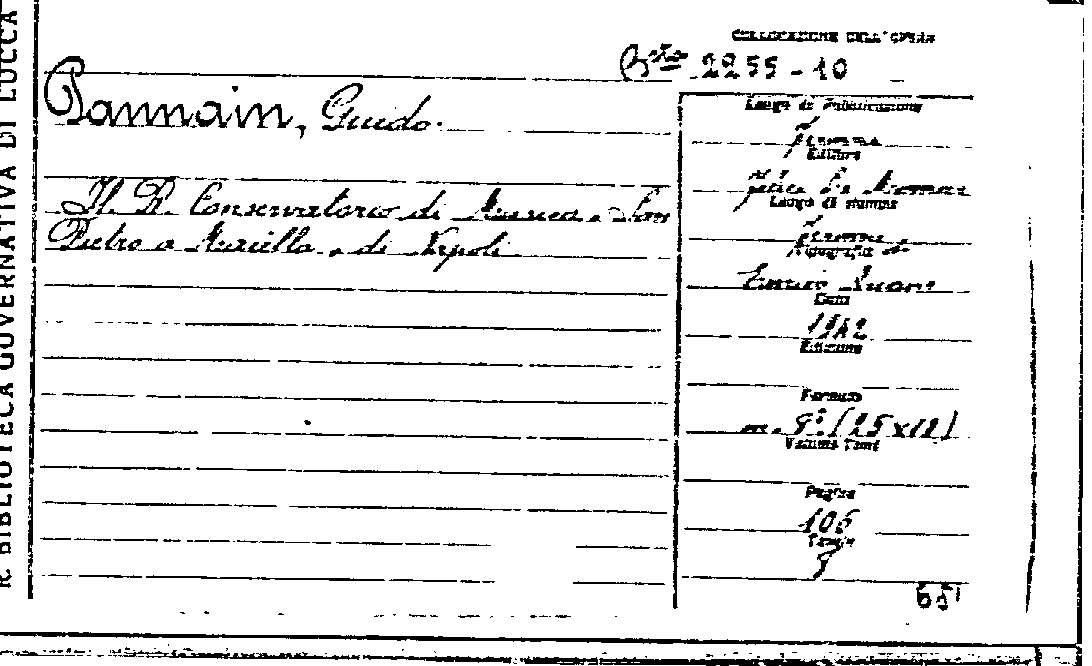 R. BIBLIOTECA GOVERNATIVA DI LUCCA
COLLOCAZIONE DELL'OPERA
2255-10
Pannain, Guido.
Il R. Conservatorio di Musica "San
Pietro a Maiella" di Napoli
Luogo di Pubblicazione
Firenze
Editore
Felice Le Monnier
Luogo di stampa
Firenze
Tipografia
Enrico
Data
1942
Edizione
Formato
in-8° (25x18)
Volumi Tomi
Pagine
106
Tavole
8